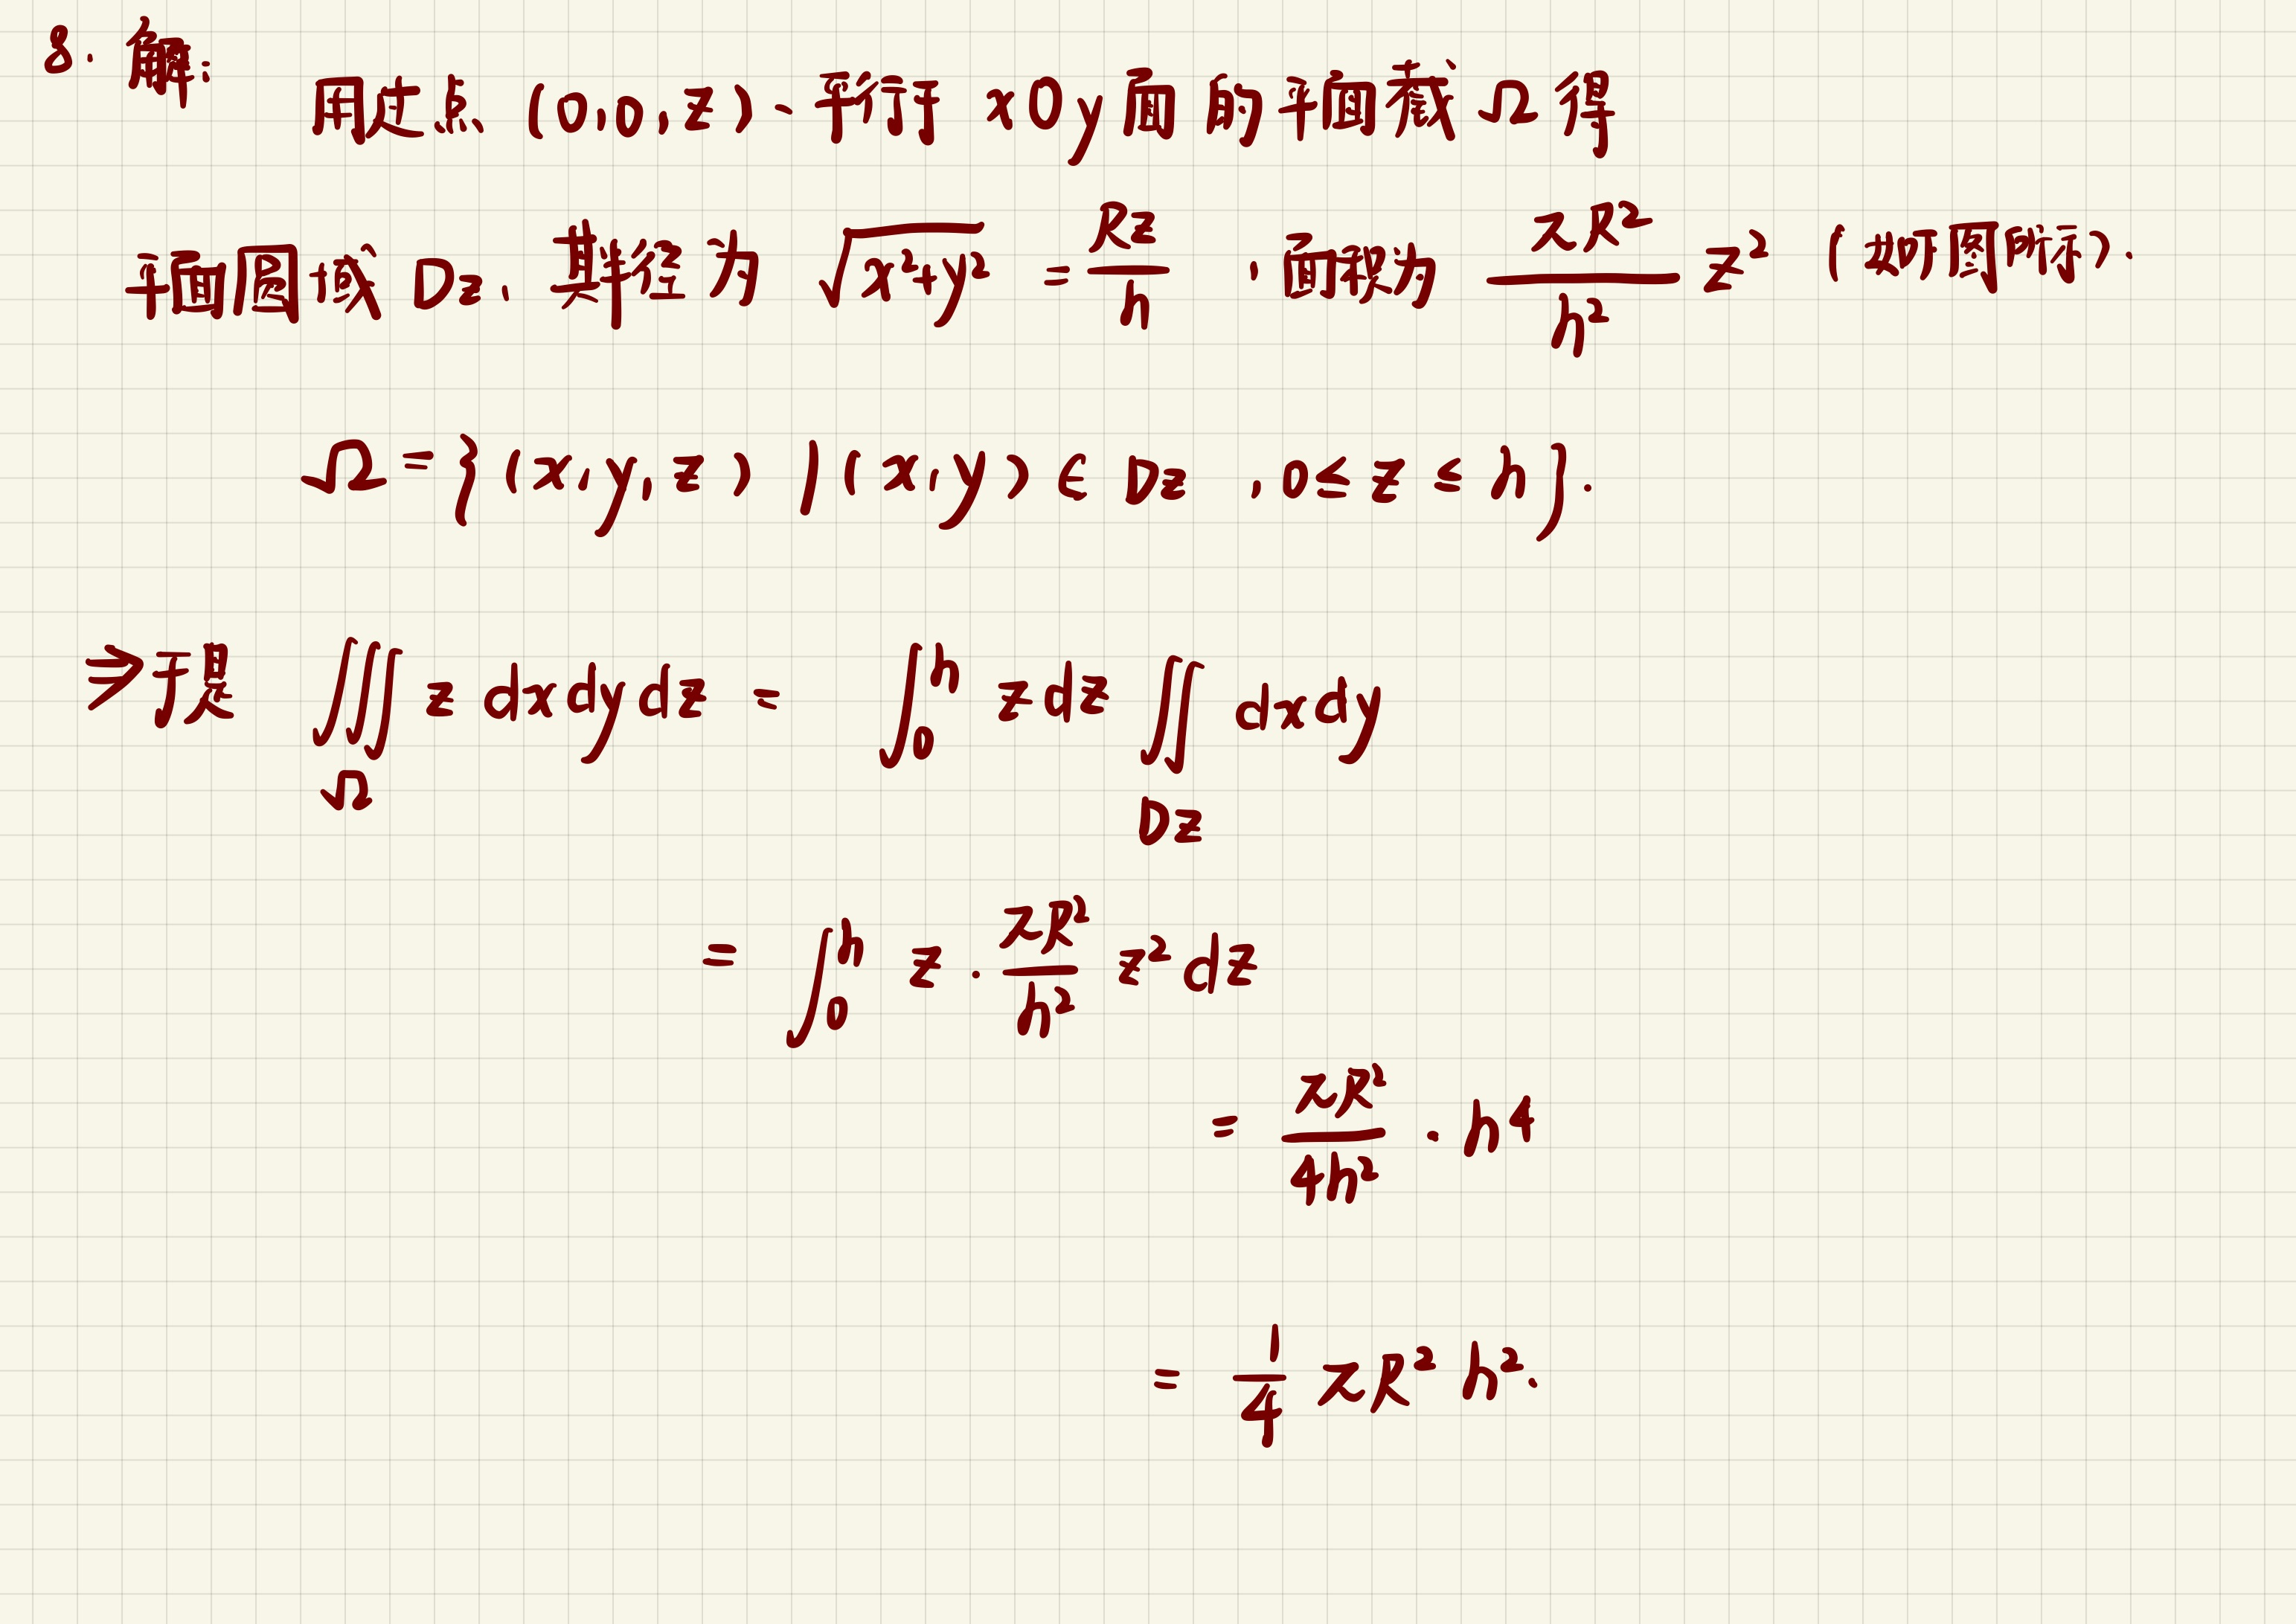 8. 解:
用过点 (0,0,z)、平行于 xOy 面的平面截 Ω 得
平面圆域 Dz. 其半径为 √(x²+y²) = Rz/h , 面积为 πR²/h² z² (如下图所示).
Ω = {(x,y,z) | (x,y) ∈ Dz , 0≤z≤h}.
⇒于是 ∭_Ω z dxdydz = ∫₀ʰ z dz ∬_Dz dxdy
= ∫₀ʰ z · πR²/h² z² dz
= πR²/4h² · h⁴
= 1/4 πR² h².